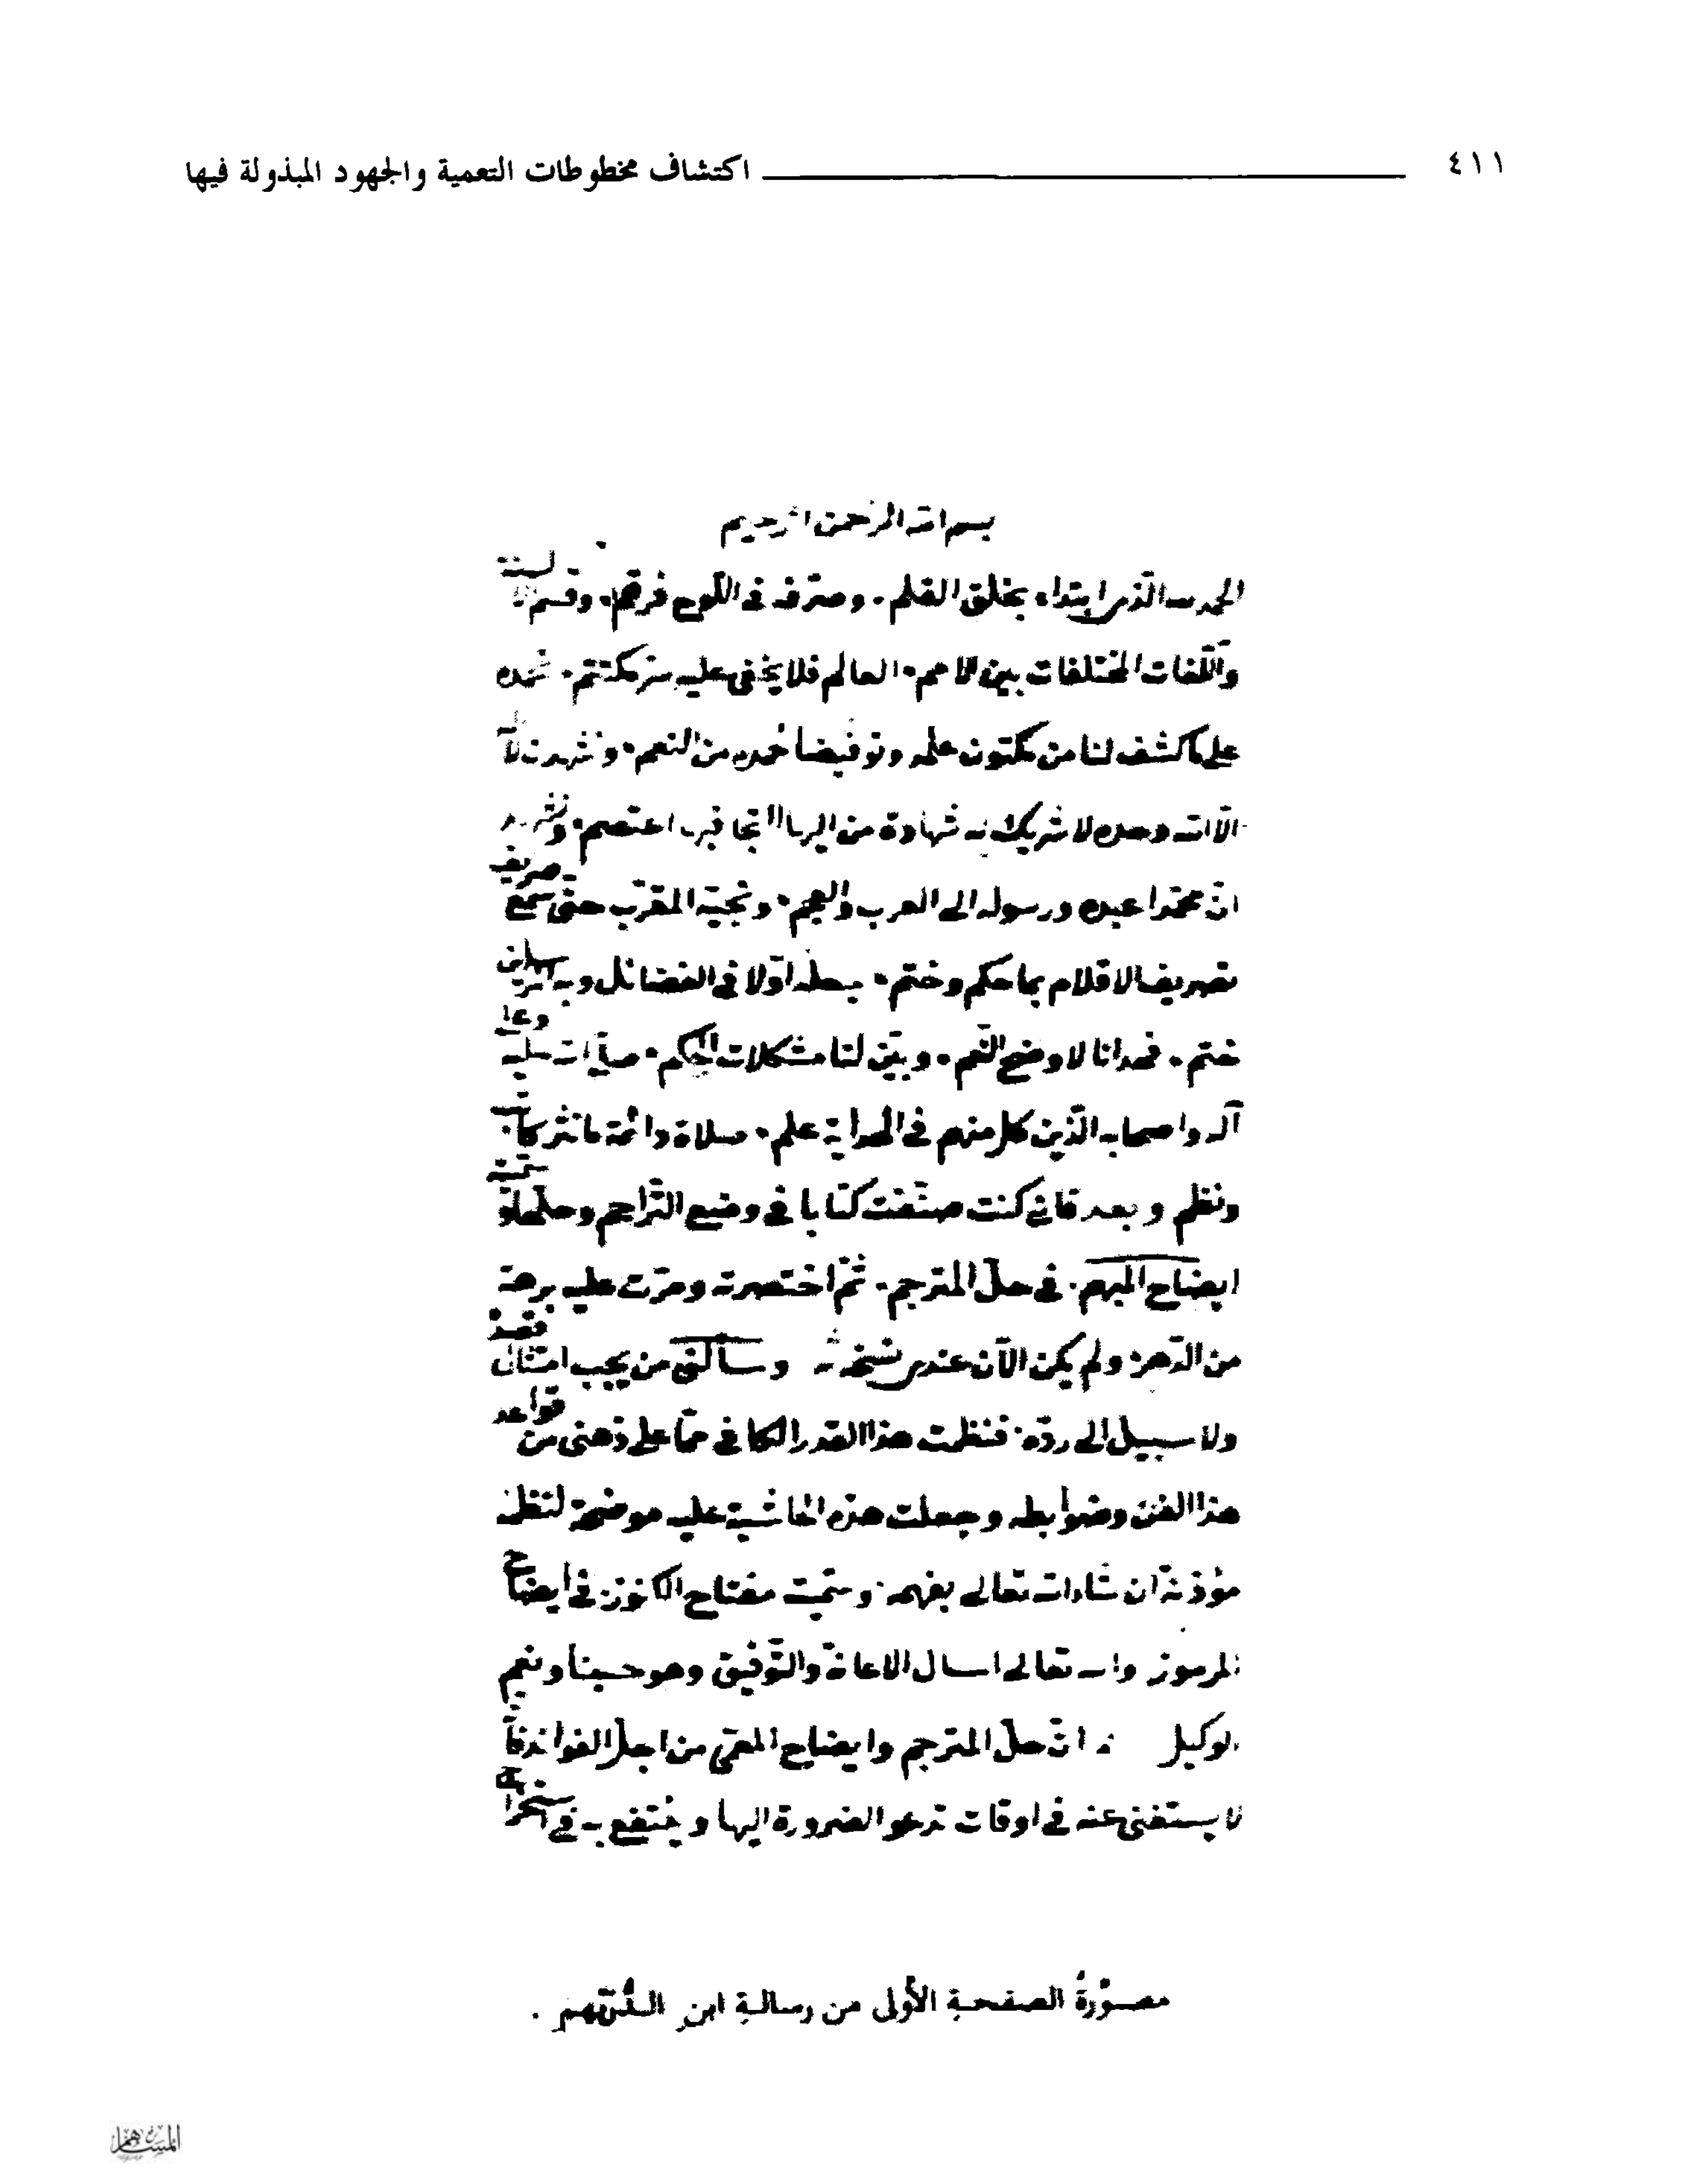 ٤١١ اكتشاف مخطوطات التعمية والجهود المبذولة فيها
بسم الله الرحمن الرحيم
الحمد لله الذى ابتداء بخلق القلم . وصرّفه فى اللّوح فرقم . وقسم الالسنة
واللّغات المختلفات بين الامم . العالم فلا يخفى عليه سرّ مكتتم . نحمده
على ما كشف لنا من مكتون علمه من النعم . ونشهد ان لا
الّا الله وحده لا شريك له شهادة من اليها التجا فيها اعتصم . ونشهد
انّ محمّدا عبده ورسوله الى العرب والعجم . ونجيّه المقرّب حتى سمع صريف
تصريف الاقلام بما حكم وختم . اوّلا فى الفضائل وبه
ختم . النّعم . وبيّن لنا مشكلات الحكم . صلى الله عليه وعلى
آله واصحابه الّذين كل منهم فى الهداية علم . صلاة دائمة ما نثر كاتب
ونظم وبعد فانى كنت صنّفت كتابا فى وضع التّراجم وحلّها سمّيته
ايضاح المبهم . فى حلّ المترجم . ثمّ اختصرته ومرّت عليه برهة
من الدّهر . ولم يكن الآن عندى نسخة وسألنى من يجب امتثال قصده
ولا سبيل الى ردّه . فنظمت هذا القدر الكافى ممّا على ذهنى من قواعد
هذا الفن وضوابطه وجعلت هذه الحاشية عليه موضحة لنظمه
مؤذنة ان شاء الله تعالى بفهمه . وسمّيته مفتاح الكنوز . فى ايضاح
المرموز والله تعالى اسال الاعانة والتّوفيق وهو حسبنا ونعم
الوكيل انّ حلّ المترجم وايضاح المعمّى من اجلّ الفوائد
لا يستغنى عنه فى اوقات تدعو الضرورة اليها وينتفع به فى استخراج
مصوّرةُ الصفحة الأولى من رسالةِ ابنِ الدُّرَيْهِم .